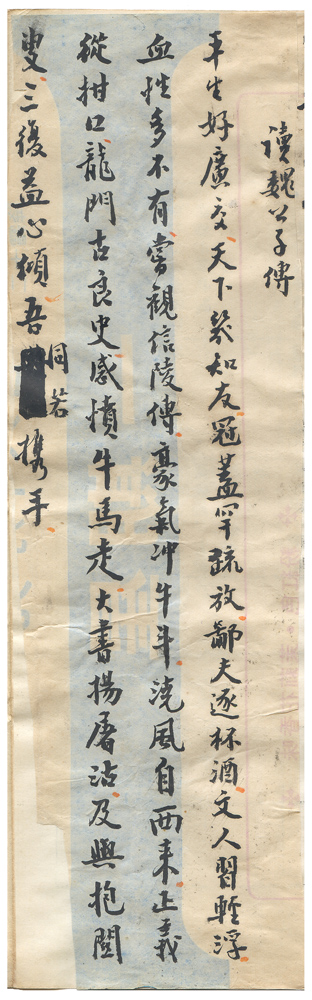 讀魏公子傳
平生好廣交天下幾知友冠蓋罕疏放鄙夫逐杯酒文人習輕浮
血性多不有嘗觀信陵傳豪氣冲牛斗澆風自西來正義
從拑口龍門古良史感憤牛馬走大書揚屠沽及與抱關
叟三復益心傾吾同若携手